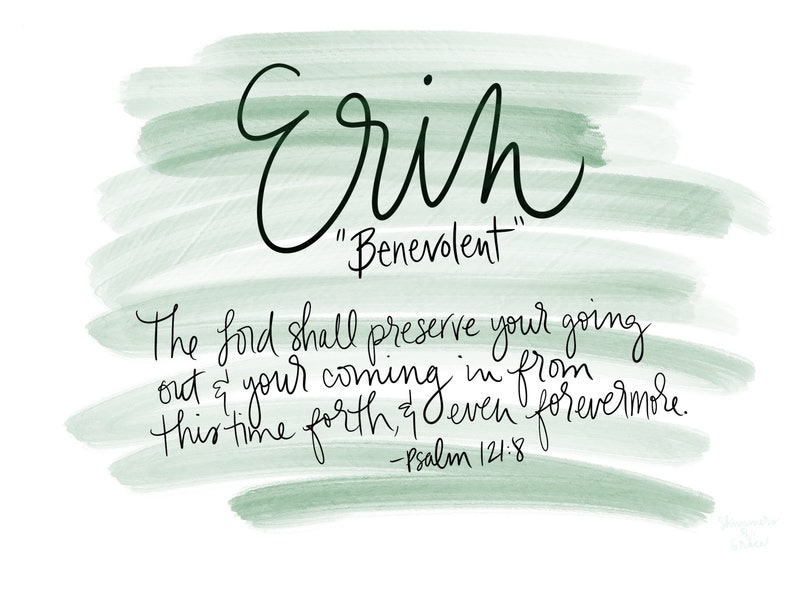 Erin
"Benevolent"
The Lord shall preserve your going
out & your coming in from
this time forth, & even forevermore.
-Psalm 121:8
Shimmers
&
Grace